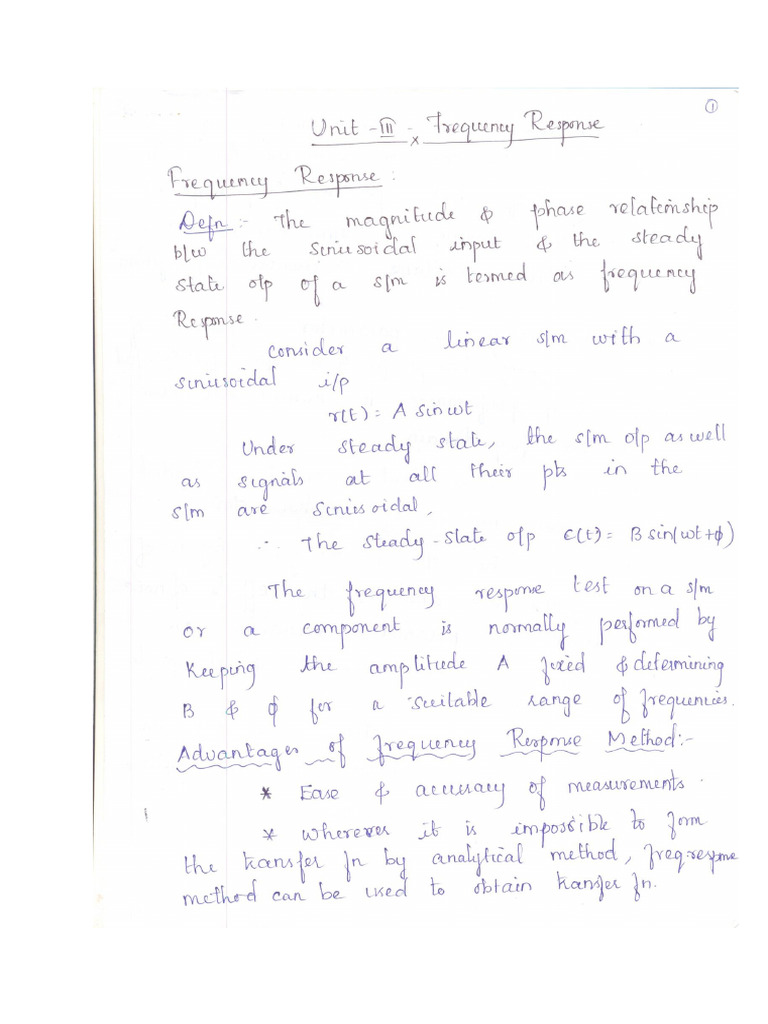 1
Unit - III - Frequency Response
Frequency Response :
Defn :- The magnitude & phase relationship
b/w the sinusoidal input & the steady
state o/p of a s/m is termed as frequency
Response.
Consider a linear s/m with a
sinusoidal i/p
r(t) = A sin ωt
Under steady state, the s/m o/p as well
as signals at all their pts in the
s/m are sinusoidal,
∴ The steady-state o/p c(t) = B sin(ωt+ϕ)
The frequency response test on a s/m
or a component is normally performed by
keeping the amplitude A fixed & determining
B & ϕ for a suitable range of frequencies.
Advantages of frequency Response Method:-
* Ease & accuracy of measurements.
* wherever it is impossible to form
the transfer fn by analytical method, freq response
method can be used to obtain transfer fn.